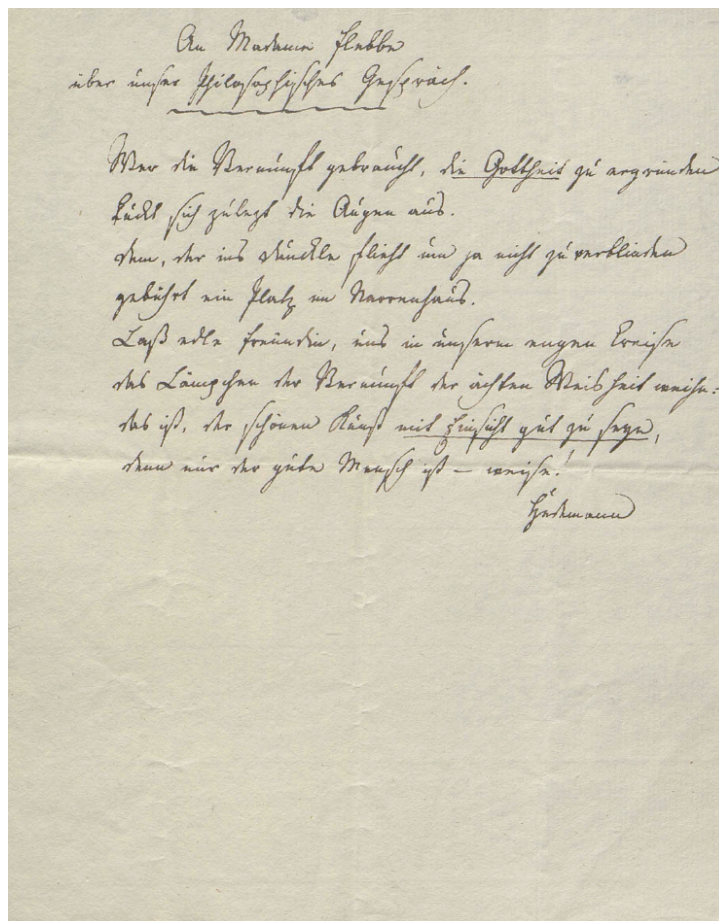 An Madame Flebbe
über unser Philosophisches Gespräch.
Wer die Vernunft gebraucht, die Gottheit zu ergründen
sich zulezt die Augen aus.
dem, der ins dunckle flieht um ja nicht zu verblinden
gebührt ein Platz im Narrenhaus.
Laß edle Freundin, uns in unserm engen Creise
das Lämpchen der Vernunft der ächten Weisheit weihn:
das ist, der schönen Kunst mit Einsicht gut zu seyn,
denn nur der gute Mensch ist – weise!